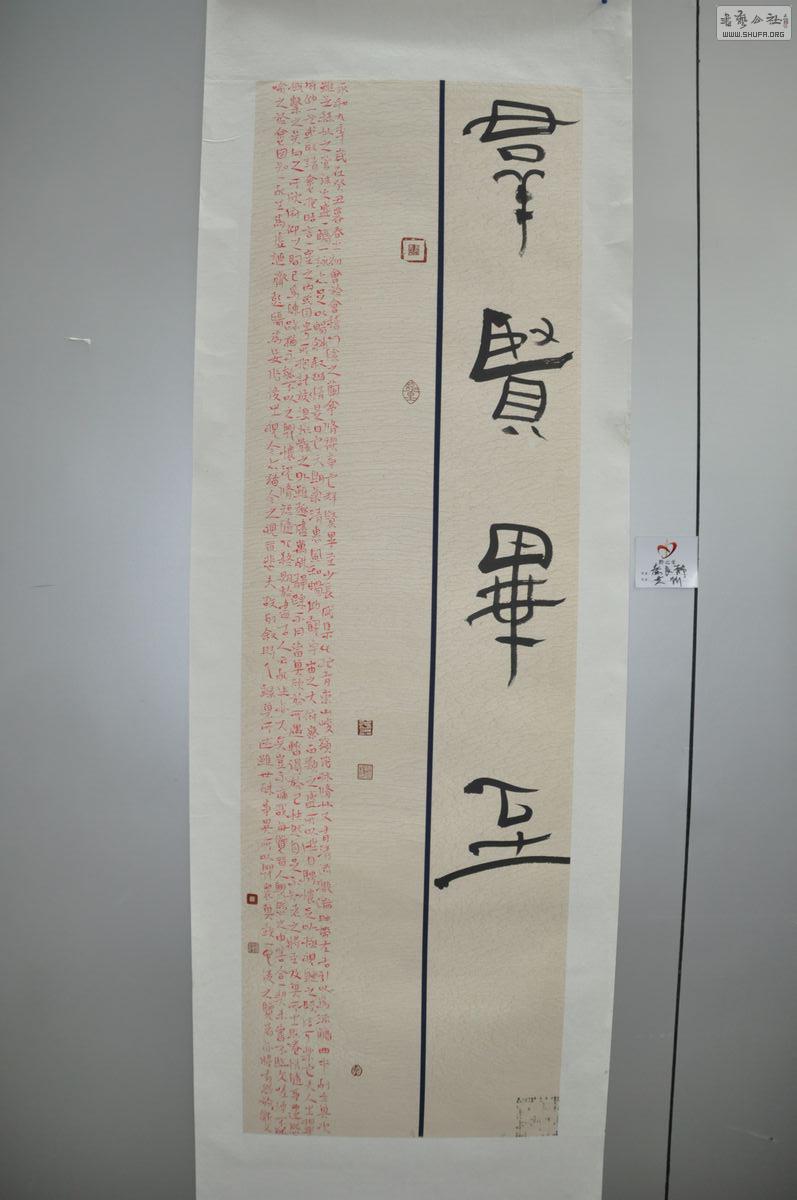 羣賢畢至
永和九年歲在癸丑暮春之初會於會稽山陰之蘭亭脩稧事也群賢畢至少長咸集此地有崇山峻領茂林脩竹又有清流激湍映帶左右引以為流觴曲水列坐其次
雖無絲竹管弦之盛一觴一詠亦足以暢敘幽情是日也天朗氣清惠風和暢仰觀宇宙之大俯察品類之盛所以遊目騁懷足以極視聽之娛信可樂也夫人之相與
俯仰一世或取諸懷抱悟言一室之內或因寄所託放浪形骸之外雖趣舍萬殊靜躁不同當其欣於所遇暫得於己快然自足不知老之將至及其所之既惓情隨事遷感
慨係之矣向之所欣俛仰之間已為陳迹猶不能不以之興懷況脩短隨化終期於盡古人云死生亦大矣豈不痛哉每攬昔人興感之由若合一契未嘗不臨文嗟悼不能
喻之於懷固知一死生為虛誕齊彭殤為妄作後之視今亦猶今之視昔悲夫故列敘時人錄其所述雖世殊事異所以興懷其致一也後之攬者亦將有感於斯文
書藝公社
WWW.SHUFA.ORG